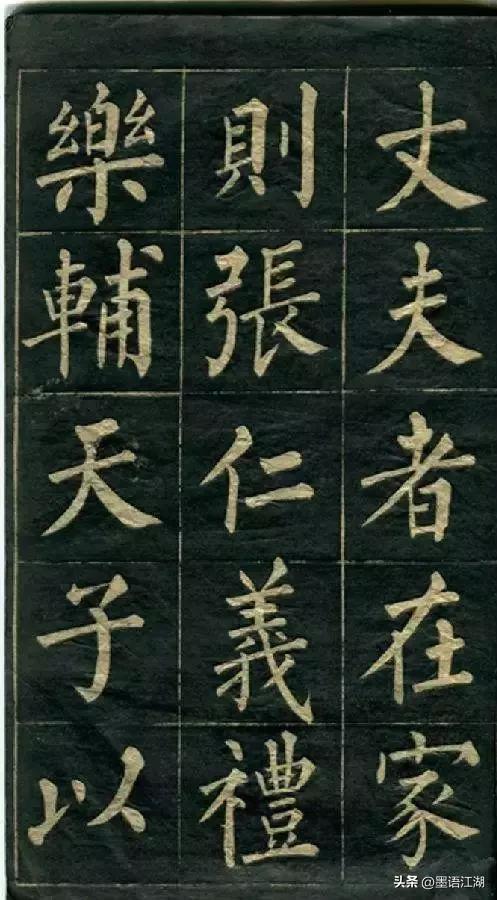 丈夫者在家
則張仁義禮
樂輔天子以
头条 @墨语江湖